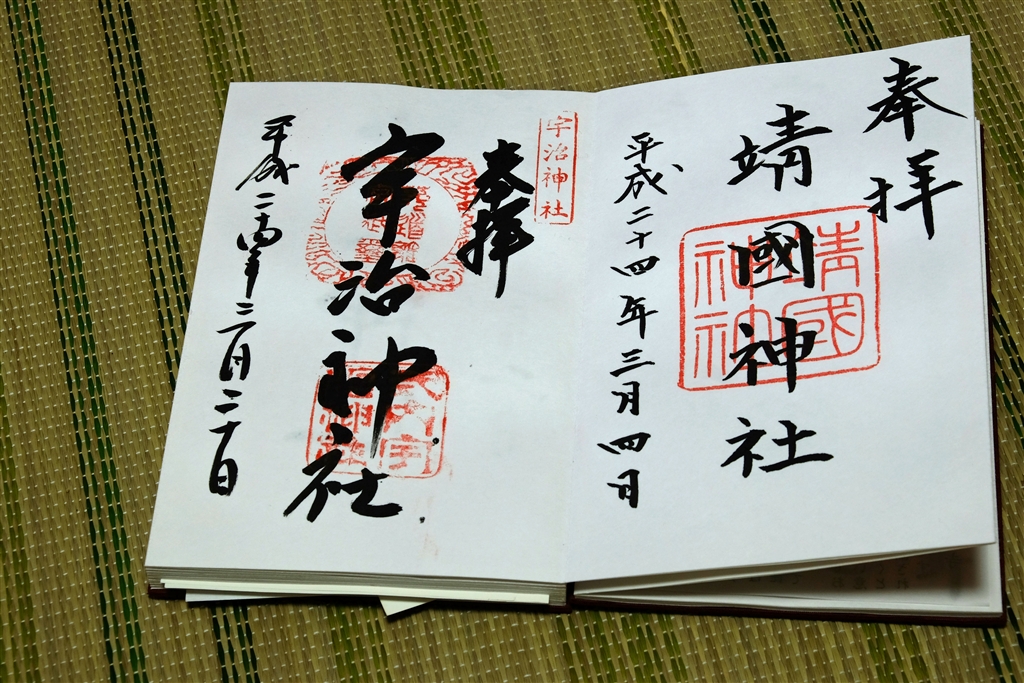 奉拝
靖國神社
靖國
神社
平成二十四年三月四日
宇治神社
奉拝
宇治神社
平成二十四年三月二十日